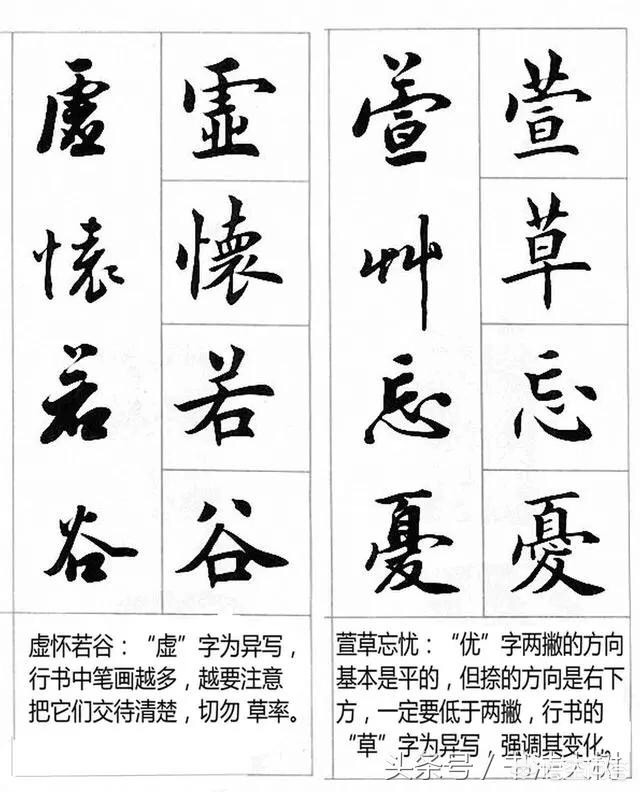 虛懷若谷
虛懷若谷
虚怀若谷：“虚”字为异写，
行书中笔画越多，越要注意
把它们交待清楚，切勿 草率。
萱艸忘憂
萱草忘憂
萱草忘忧：“优”字两撇的方向
基本是平的，但捺的方向是右下
方，一定要低于两撇，行书的
“草”字为异写，强调其变化。
头条号 /